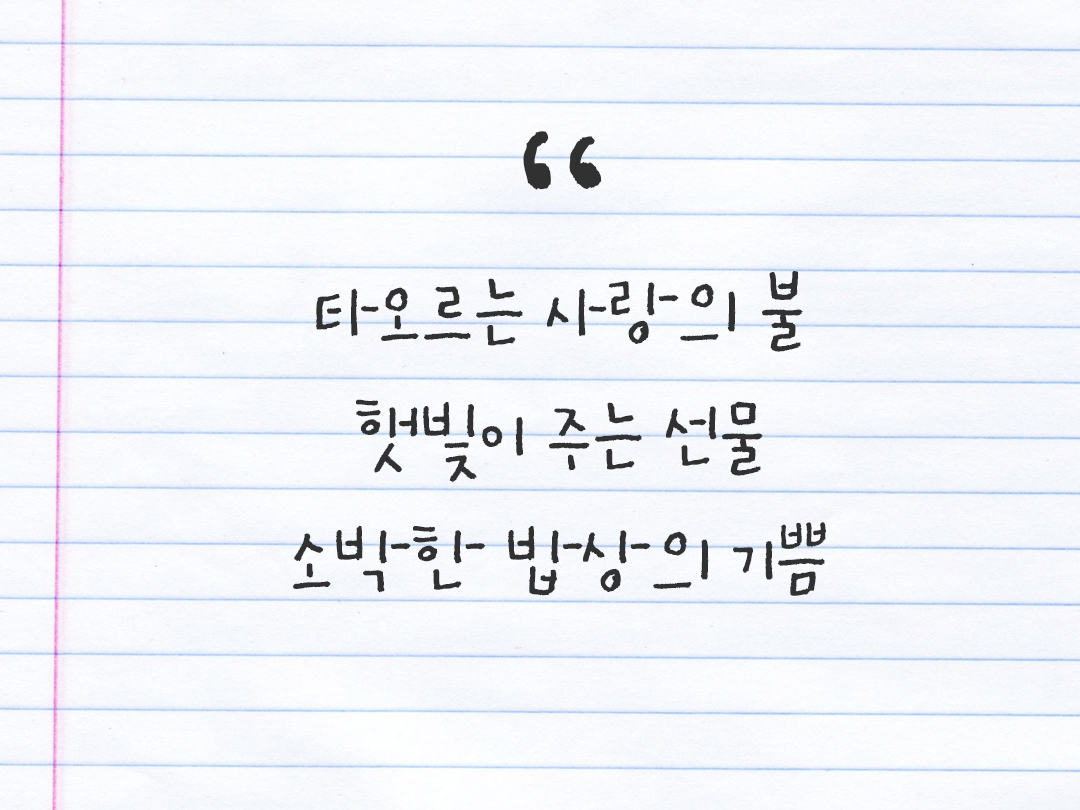 “
타오르는 사랑의 불
햇빛이 주는 선물
소박한 밥상의 기쁨